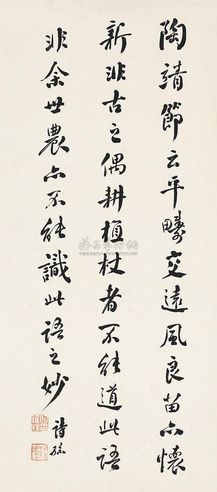 陶靖節云平疇交遠風良苗亦懷
新非古之偶耕植杖者不能道此語
非余世農亦不能識此語之妙
詩孫